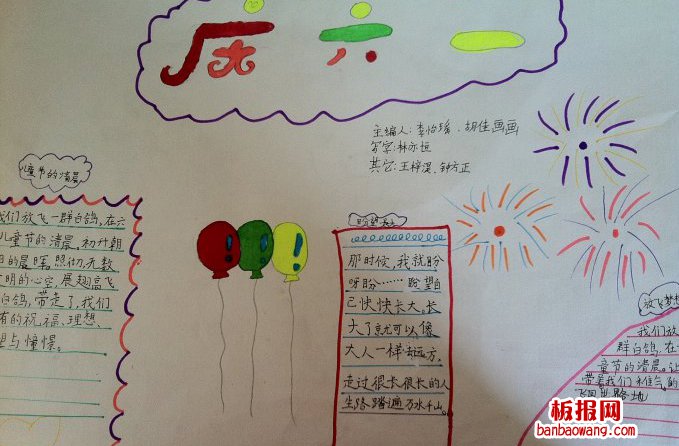 庆六一
主编人:李怡瑶、胡佳画画
写字:林亦垣
其它:王梓涵、钟方正
儿童节的清晨
我们放飞一群白鸽,在六
儿童节的清晨。初升朝
日的晨晖,照彻无数
明的心空,展翅高飞
白鸽,带走了,我们
有的祝福、理想、
望与憧憬。
盼望长大
那时候,我就盼
呀盼……盼望自
己快快长大。长
大了就可以像
大人一样去远方。
走过很长很长的人
生路踏遍万水千山。
放飞梦想
我们放
群白鸽,在
童节的清晨。让
带着我们稚气的
飞回
板报网
banbaowang.com